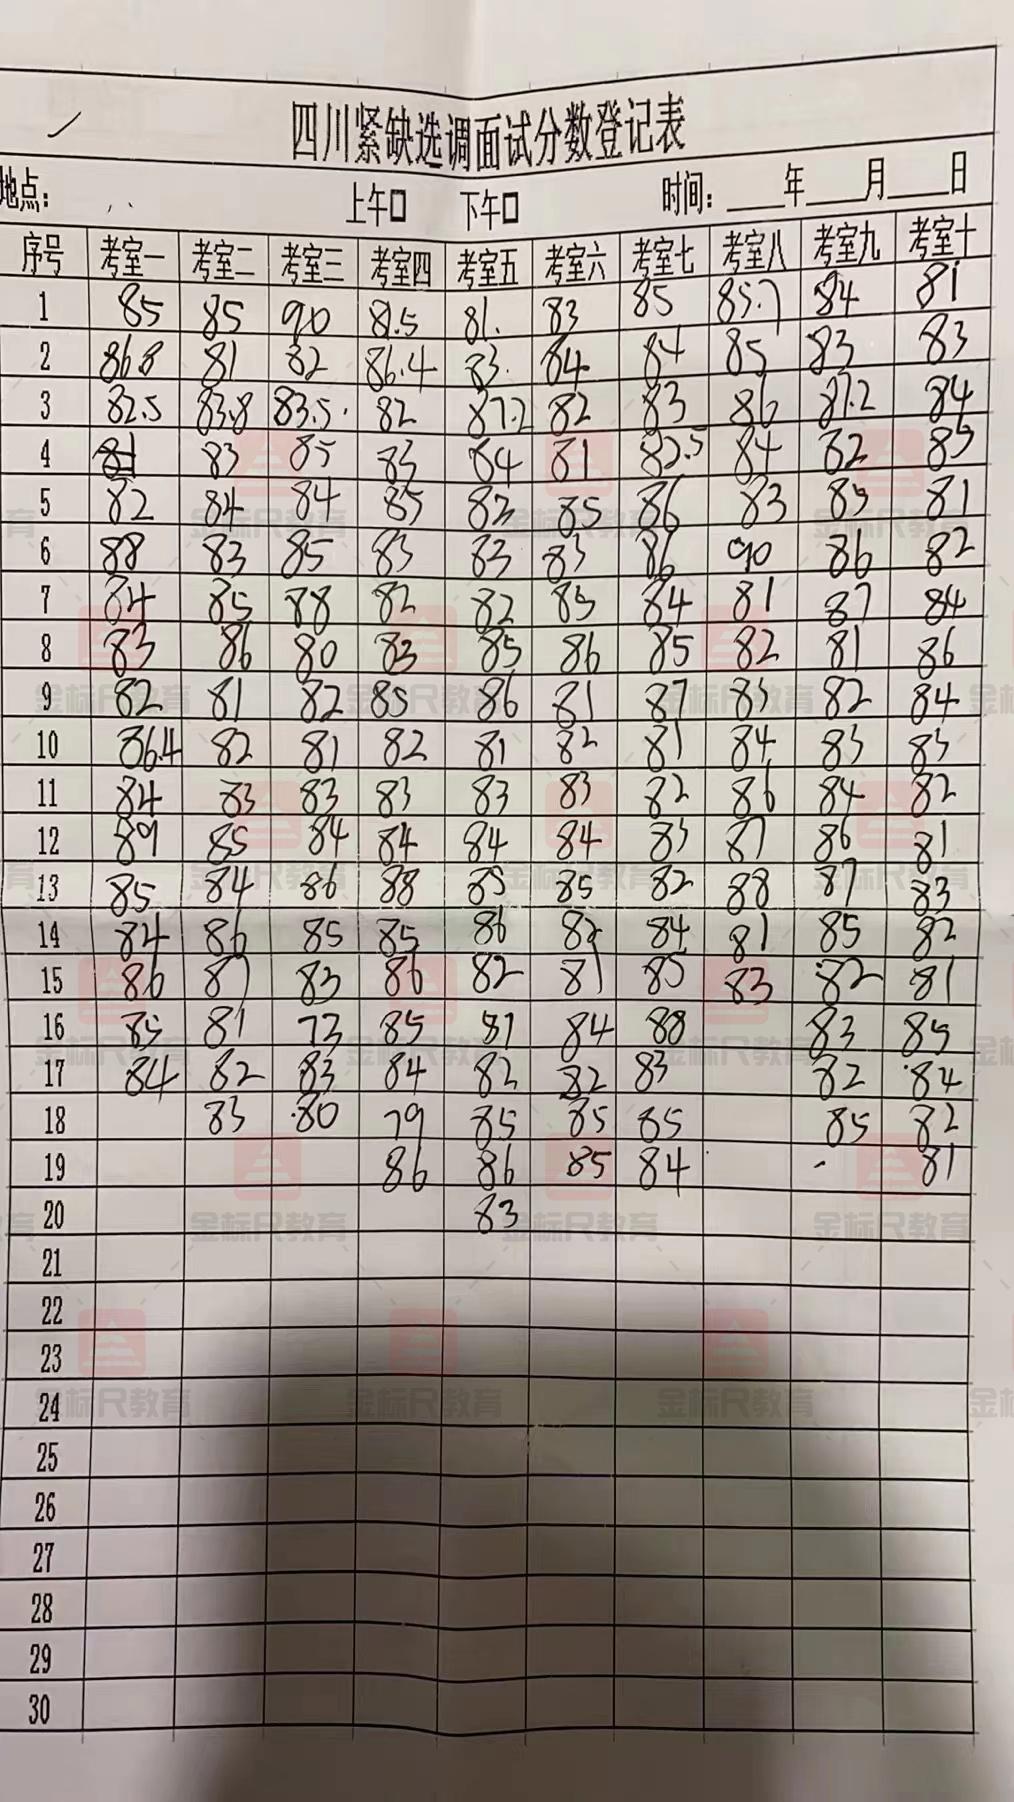 四川紧缺选调面试分数登记表
地点： 上午□ 下午□ 时间：____年____月____日
序号 考室一 考室二 考室三 考室四 考室五 考室六 考室七 考室八 考室九 考室十
1 85 85 90 81.5 81. 83 85 85.7 84 81
2 86.8 81 82 86.4 83. 84 84 85 83 83
3 82.5 83.8 83.5. 82 87.2 82 83 86 81.2 84
4 83 85 83 84 81 82.5 84 82 85
5 82 84 84 85 82 85 86 83 85 81
6 88 83 85 83 83 83 86 90 86 82
7 84 85 88 82 82 85 84 81 87 84
8 83 86 80 83 85 86 85 82 81 86
9 82 81 82 85 86 81 87 83 82 84
10 86.4 82 81 82 81 82 81 84 83 83
11 84 83 83 83 83 83 82 86 84 82
12 89 85 84 84 84 84 83 87 86 81
13 85 84 86 88 85 85 82 88 87 83
14 84 86 85 85 86 84 81 85 82
15 86 87 83 86 82 81 85 83 82 81
16 85 81 73 85 81 84 88 83 85
17 84 82 83 84 82 82 83 82 84
18 83 80 79 85 85 85 85 82
19 86 86 85 84 81
20 83
21
22
23
24
25
26
27
28
29
30
金标尺教育